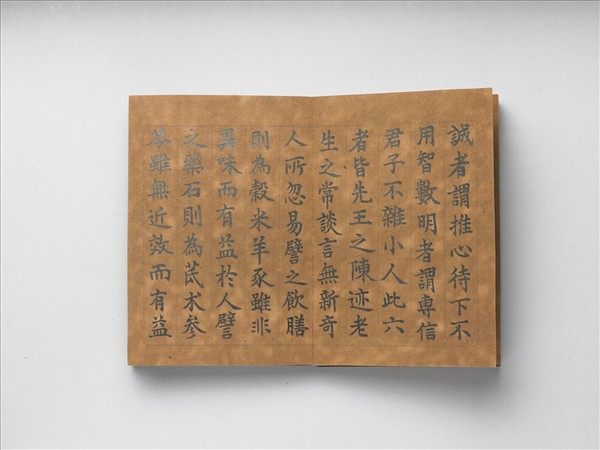 誠者謂推心待下不
用智數明者謂專信
君子不雜小人此六
者皆先王之陳迹老
生之常談言無新奇
人所忽易譬之飲膳
則為穀米羊豕雖非
異味而有益於人譬
之藥石則為芪术參
苓雖無近效而有益